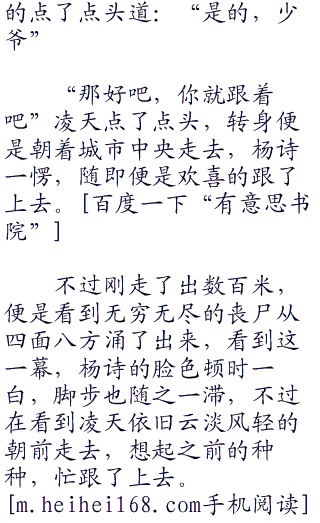 的点了点头道：“是的，少
爷”
“那好吧，你就跟着
吧”凌天点了点头，转身便
是朝着城市中央走去，杨诗
一愣，随即便是欢喜的跟了
上去。[百度一下“有意思书
院”]
不过刚走了出数百米，
便是看到无穷无尽的丧尸从
四面八方涌了出来，看到这
一幕，杨诗的脸色顿时一
白，脚步也随之一滞，不过
在看到凌天依旧云淡风轻的
朝前走去，想起之前的种
种，忙跟了上去。
[m.heihei168.com手机阅读]